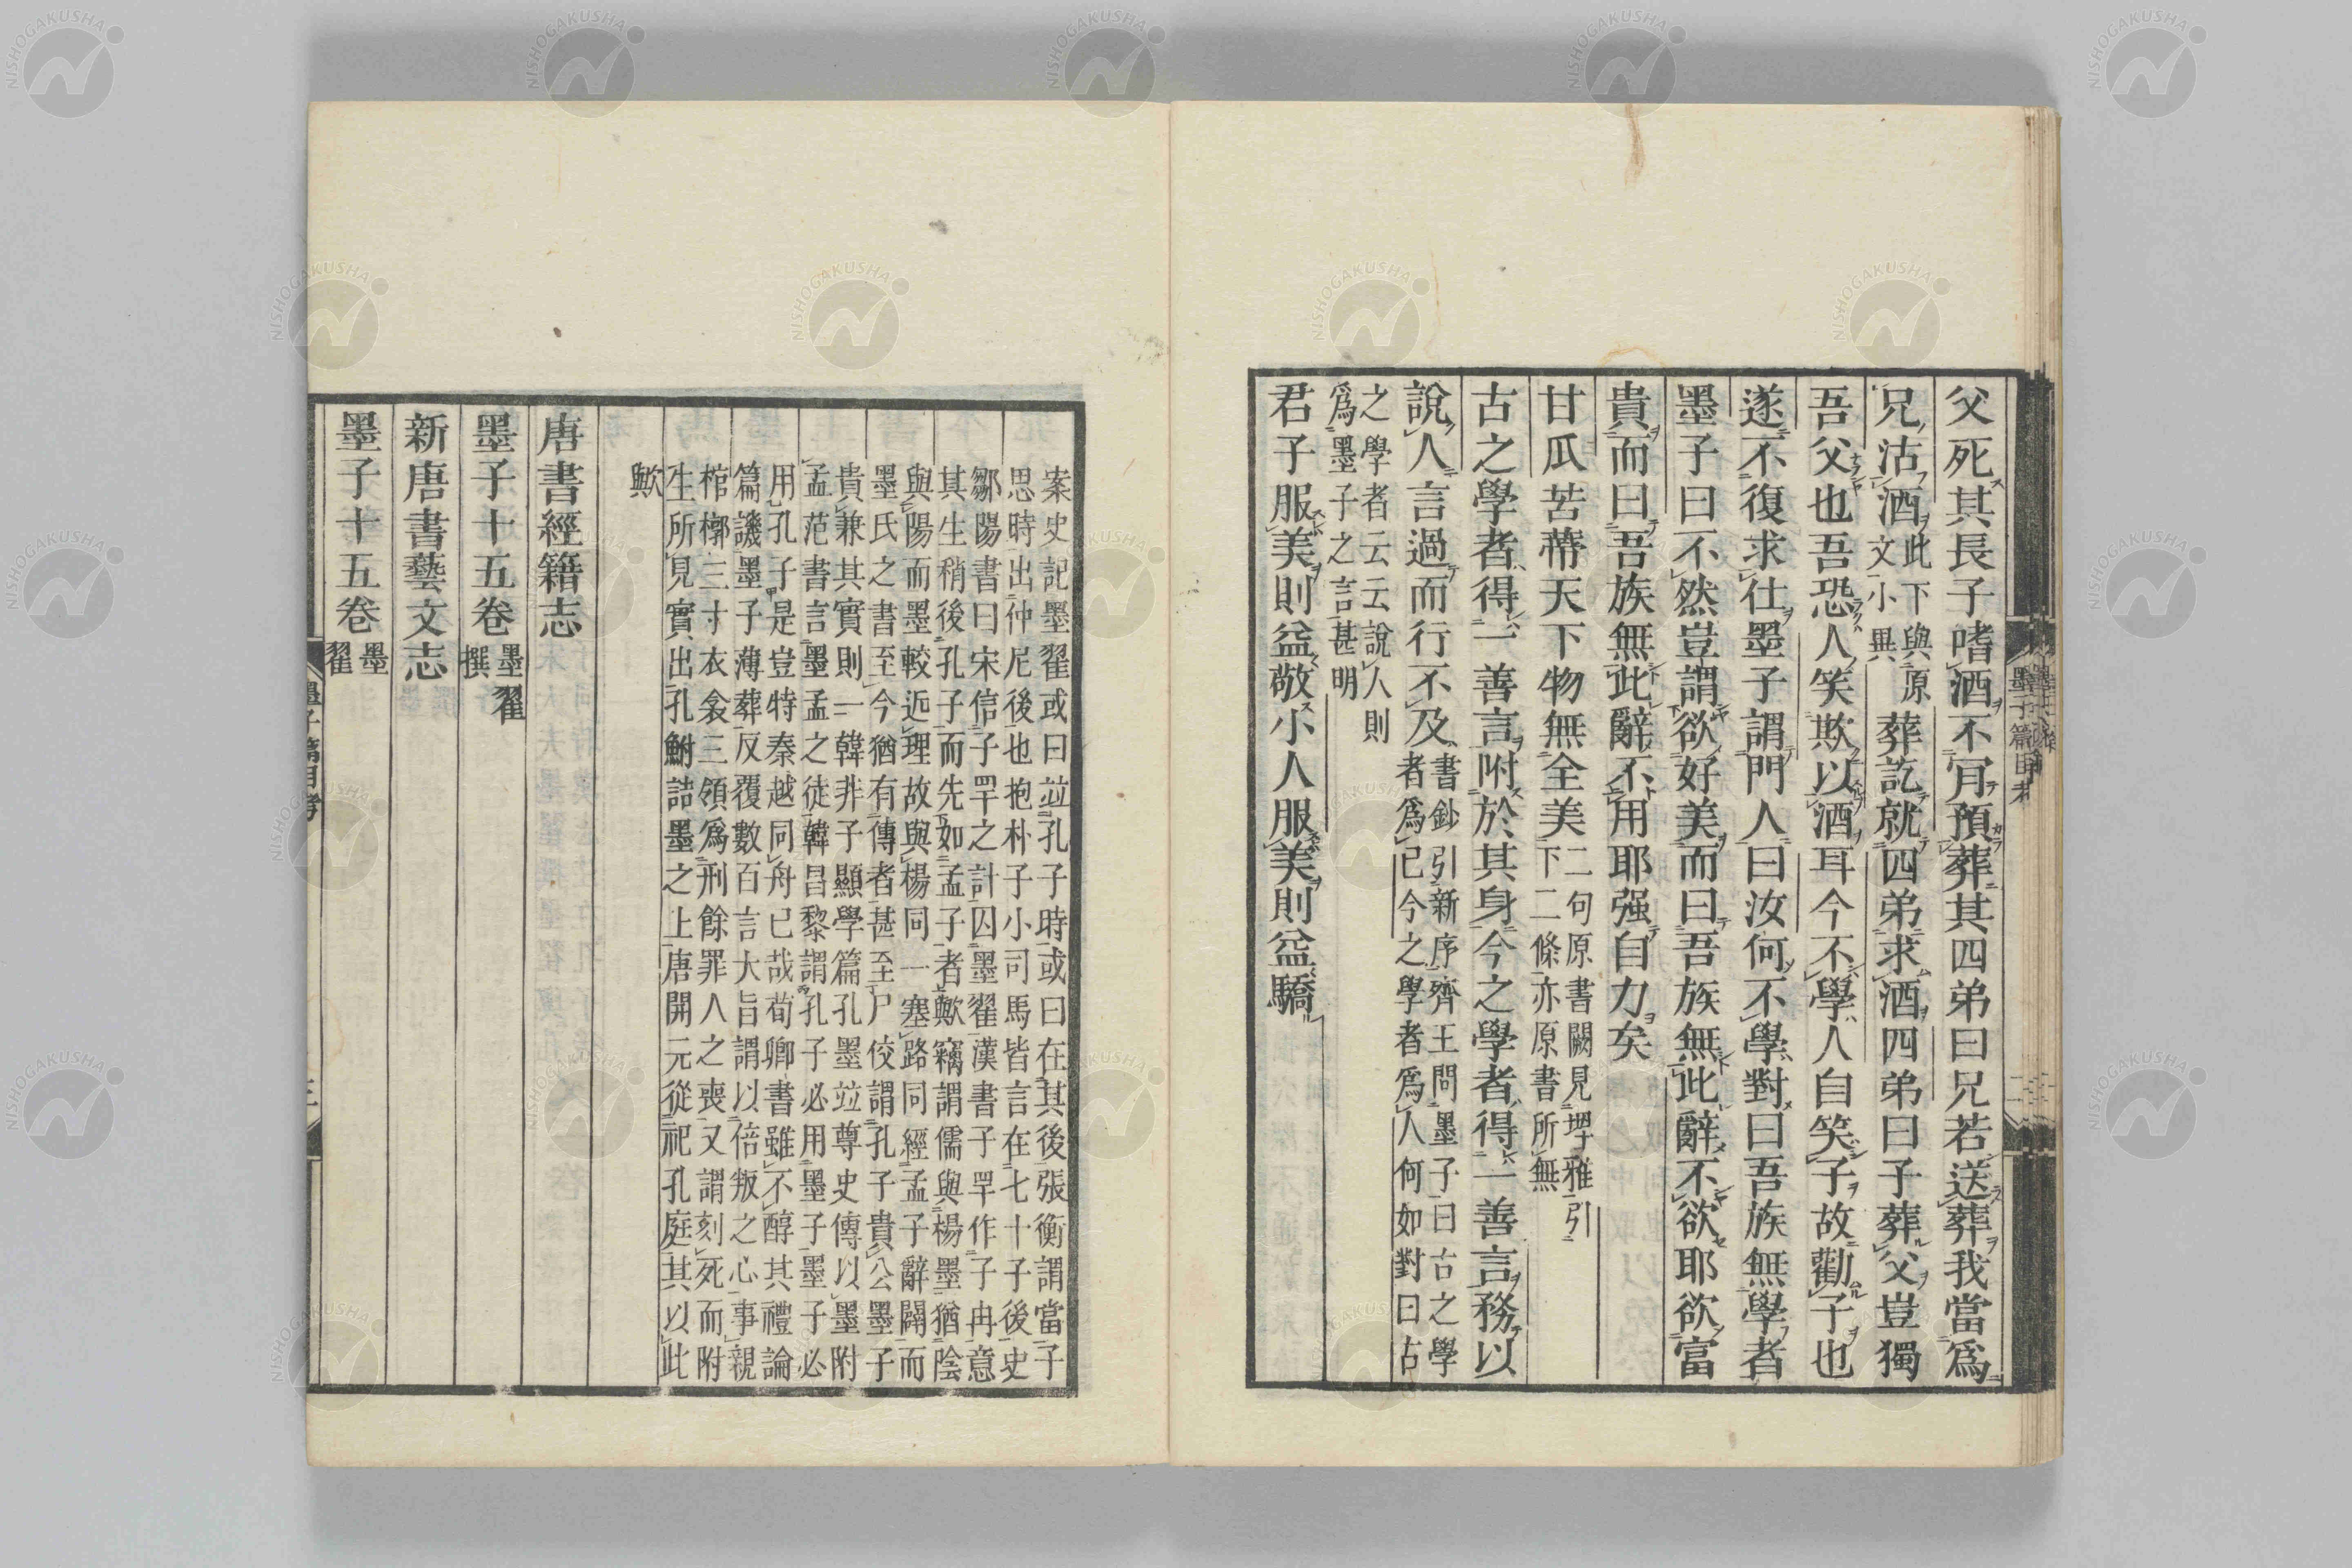 父死其長子嗜酒不肎預葬其四弟曰兄若送葬我當爲
兄沽酒此下與原文小異葬訖就四弟求酒四弟曰子葬父豈獨
吾父也吾恐人笑欺以酒耳今不學人自笑子故勸子也
遂不復求仕墨子謂門人曰汝何不學對曰吾族無學者
墨子曰不然豈謂欲好美而曰吾族無此辭不欲耶欲富
貴而曰吾族無此辭不用耶强自力矣
甘瓜苦蔕天下物無全美二句原書闕見埤雅引下二條亦原書所無
古之學者得一善言附於其身今之學者得一善言務以
說人言過而行不及書鈔引新序齊王問墨子曰古之學者爲已今之學者爲人何如對曰古
之學者云云說人則爲墨子之言甚明
君子服美則益敬小人服美則益驕
案史記墨翟或曰竝孔子時或曰在其後張衡謂當子
思時出仲尼後也抱朴子小司馬皆言在七十子後史
鄒陽書曰宋信子罕之計囚墨翟漢書子罕作子冉意
其生稍後孔子而先如孟子者歟竊謂儒與楊墨猶陰
與陽而墨較近理故與楊同一塞路同經孟子辭闢而
墨氏之書至今猶有傳者甚至尸佼謂孔子貴公墨子
貴兼其實則一韓非子顯學篇孔墨竝尊史傳以墨附
孟范書言墨孟之徒韓昌黎謂孔子必用墨子墨子必
用孔子是豈特秦越同舟已哉荀卿書雖不醇其禮論
篇譏墨子薄葬反覆數百言大旨謂以倍叛之心事親
棺槨三寸衣衾三領爲刑餘罪人之喪又謂刻死而附
生所見實出孔鮒詰墨之上唐開元從祀孔庭其以此
歟
唐書經籍志
墨子十五卷墨翟撰
新唐書藝文志
墨子十五卷墨翟
墨子篇目考
三
墨子篇目考
二
NISHOGAKUSHA